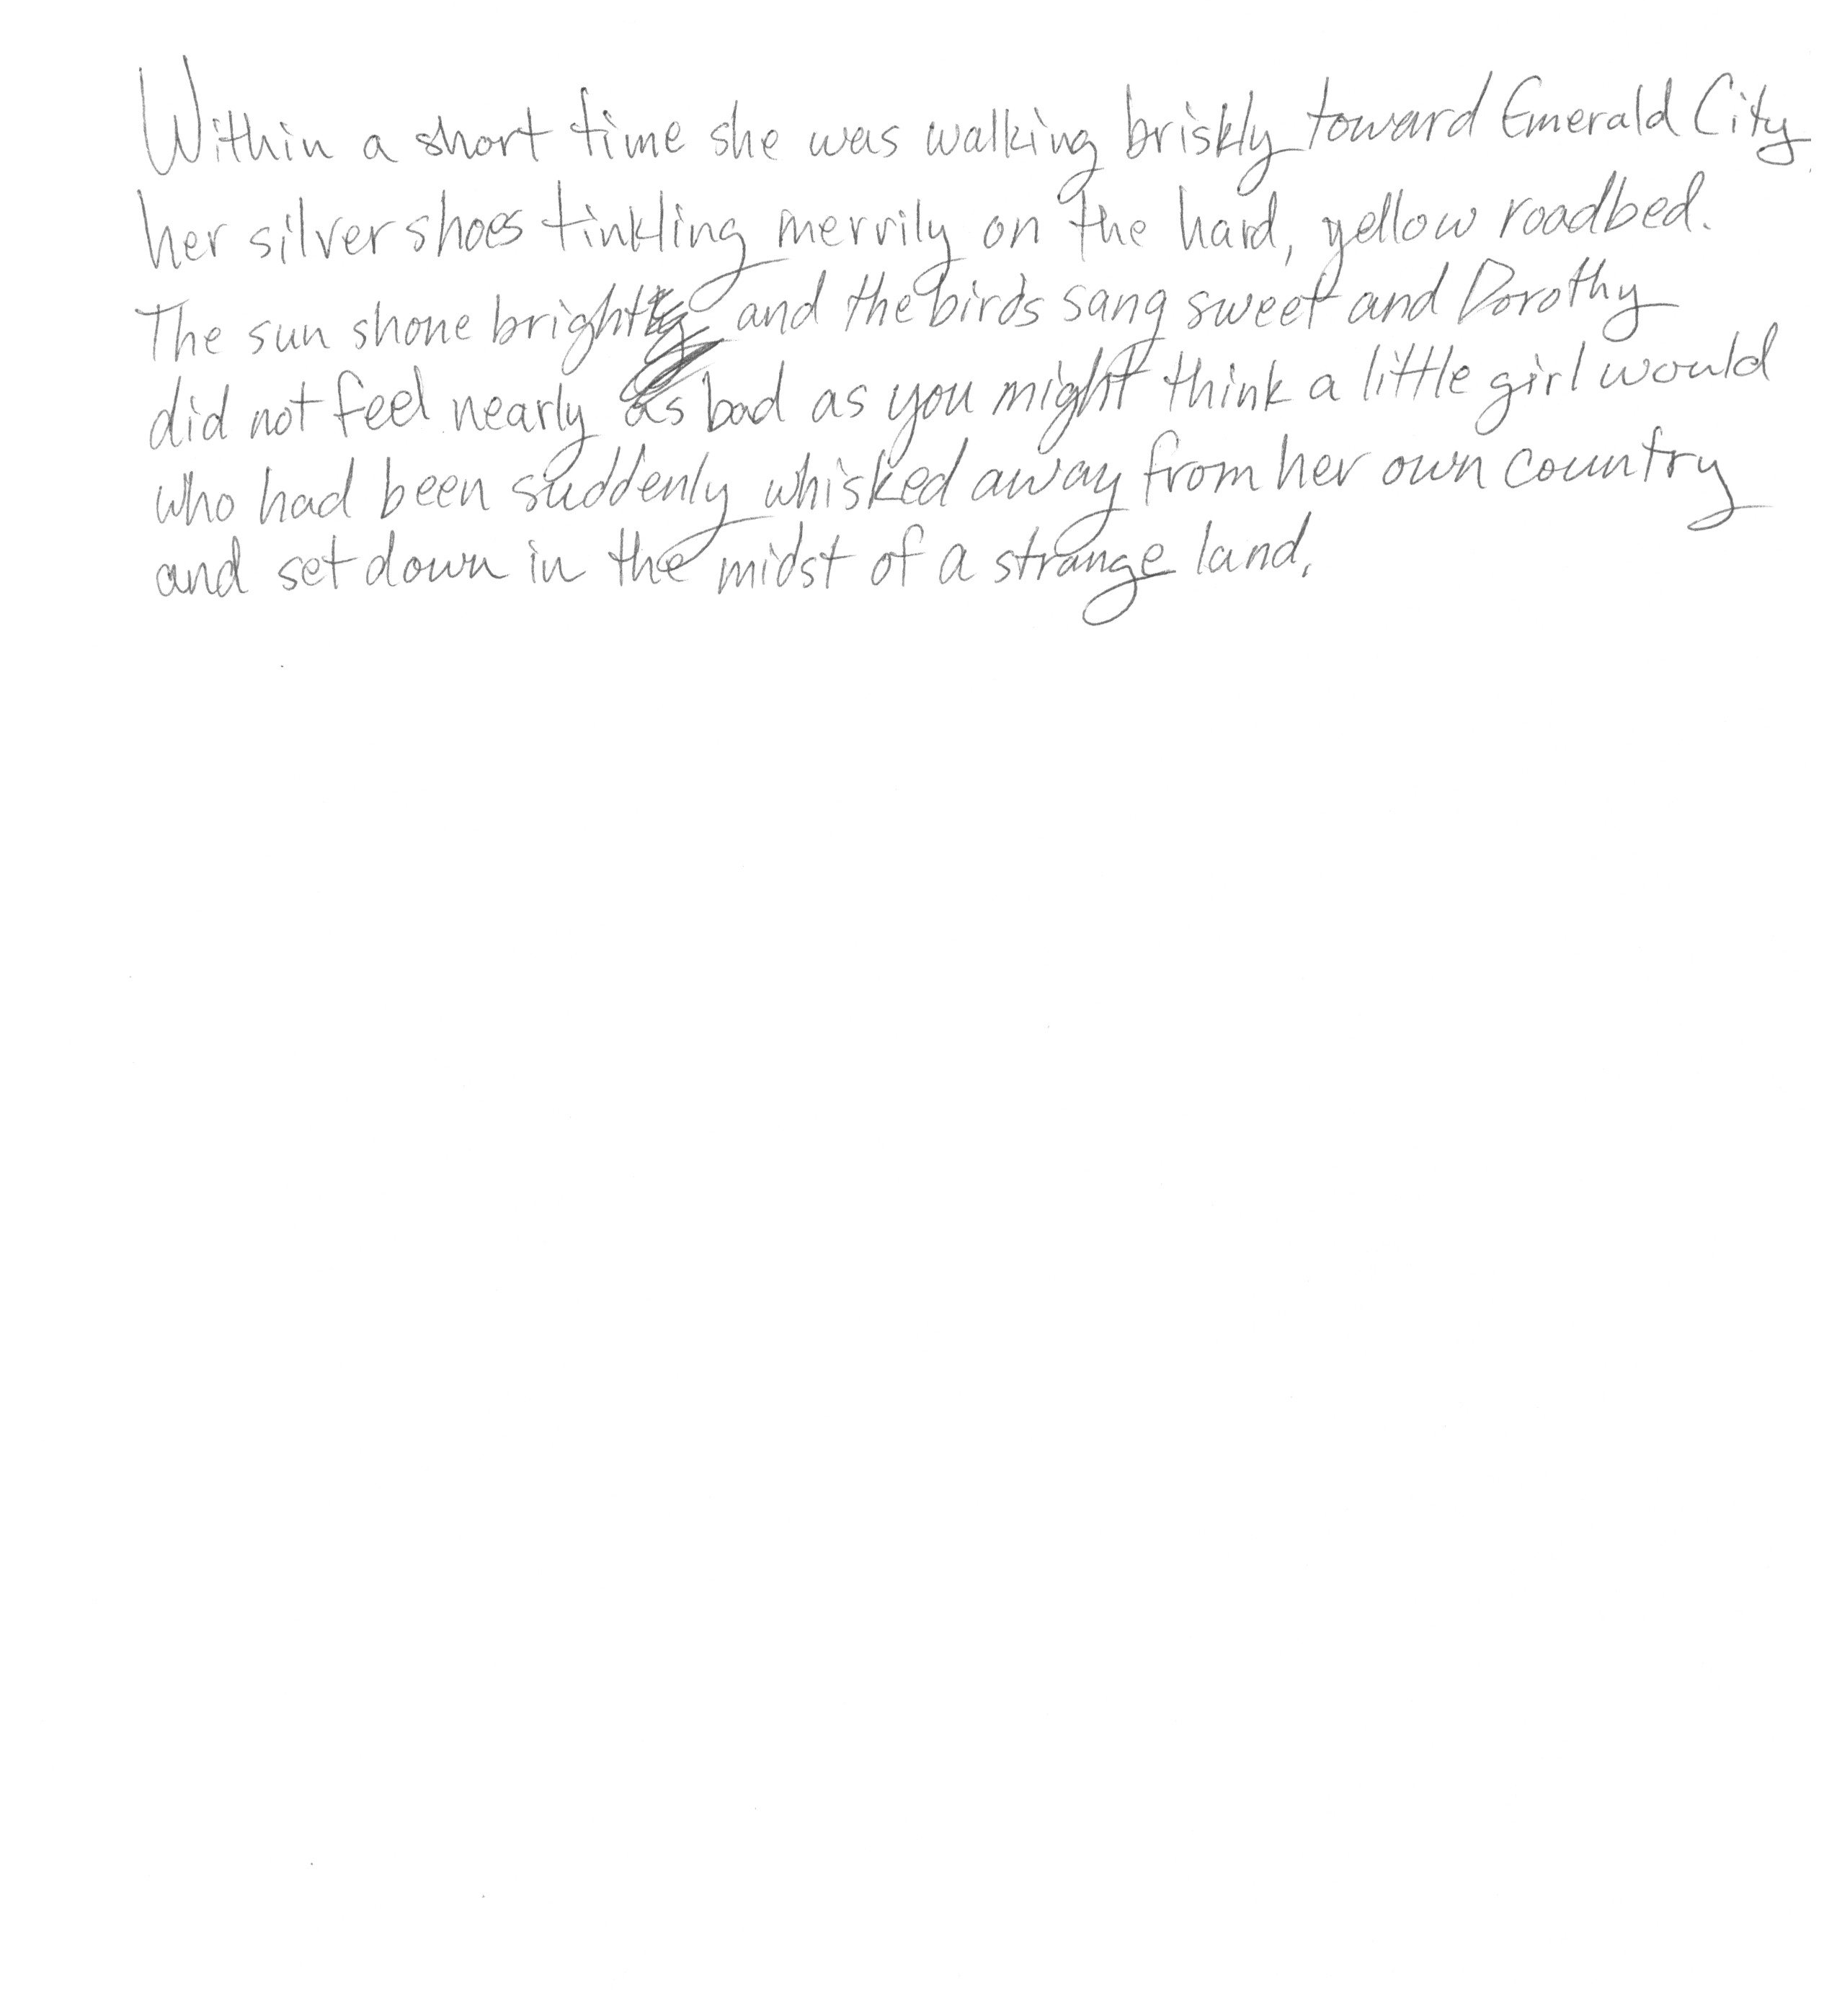 Within a short time she was walking briskly toward Emerald City,
her silver shoes tinkling merrily on the hard, yellow roadbed.
The sun shone bright and the birds sang sweet and Dorothy
did not feel nearly as bad as you might think a little girl would
who had been suddenly whisked away from her own country
and set down in the midst of a strange land.